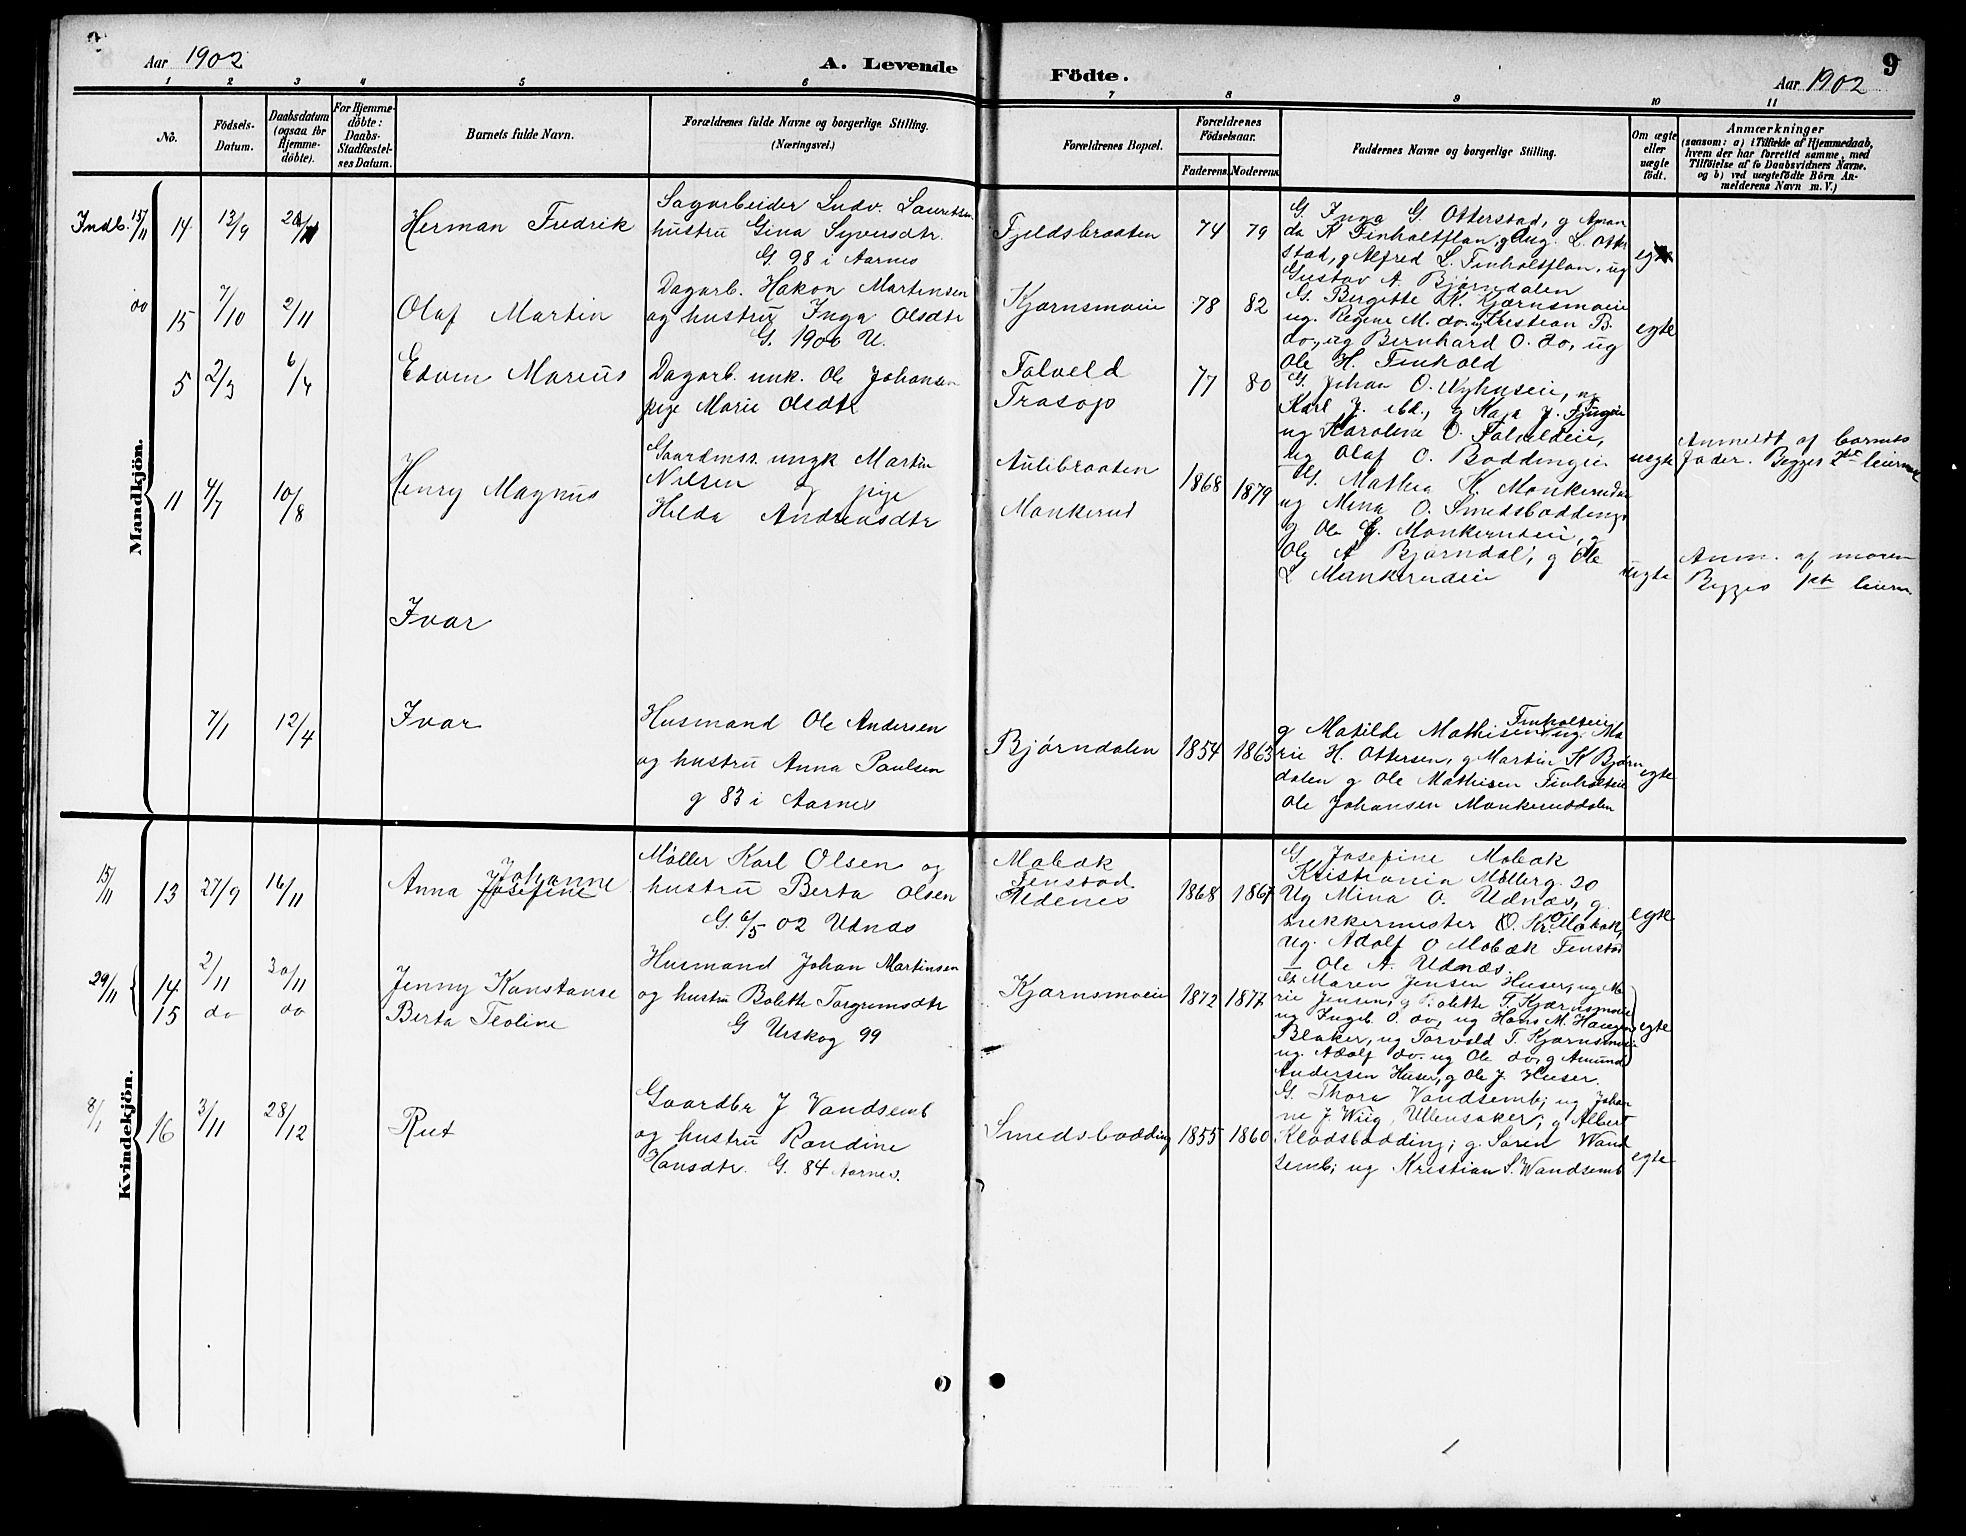 Aar 1902
A. Levende
Födte.
9
Aar 1902
1 2 3 4 5 6 7 8 9 10 11
No.
Födsels-Datum.
Daabsdatum (ogsaa for Hjemme-döbte).
For Hjemme-döbte: Daabs-Stadfæstel-ses Datum.
Barnets fulde Navn.
Forældrenes fulde Navne og borgerlige Stilling.
(Næringsvei.)
Forældrenes Bopæl.
Forældrenes Födselsaar.
Faderens. Moderens.
Faddernes Navne og borgerlige Stilling.
Om ægte eller uægte födt.
Anmærkninger
(saasom: a) i Tilfælde af Hjemmedaab,
hvem der har forrettet samme, med
Tilföielse af to Daabsvidners Navne.
og b) ved uægtefödte Börn An-
melderens Navn m. V.)
Mandkjön.
Indb. 15/11 14 13/9
Herman Fredrik
Sagarbeider Ludv. Lauritsen
hustru Gina Syversdtr.
G. 98 i Aarnes
Fjeldsbraaten 74 79
G. Inga G. Otterstad, g Aman
da K Finholtflan, g Aug. L. Otter
stad, g Alfred L. Finholtflan, ug
Gustav A. Bjørndalen
egte
do 15 7/10 2/11
Olaf Martin
Dagarb. Hakon Martinsen
og hustru Inga Olsdtr
G. 1900 U.
Kjærnsmoeie 78 82
G. Birgitte K. Kjærnsmoeie
ug. Regine M. do. ug Kristian B.
do., ug Bernhard O. do, ug
Ole H. Finhold
egte
5 2/3 6/4
Edvin Marius
Dagarb. unk. Ole Johansen
pige Marie Olsdtr
Falveld
Trasop
77 80
G. Johan O. Nyhuseie, ug
Karl J. ibd., g Maja J.
ug Karoline O. Falveldeie,
ug Olaf O. Boddingeie
uegte
Anmeldt af barnets
fader. Begges 2det leierm
11 4/7 10/8
Henry Magnus
Gaardmss. ungk Martin
Nilsen og pige
Hilda Andreasdtr
Aulibraaten
Monkerud
1868 1879
G. Mathea K. Monkeruddal
ug Mina O. Smedsbodding,
g Ole G. Monkerudeie, g
Ole A Bjørndal, g Ole
L Monkerudeie
uegte
Anm. af moren
Begges 1ste leierm
Ivar
7/1 12/4
Ivar
Husmand Ole Andersen
og hustru Anna Paulsen
g 83 i Aarnes
Bjørndalen 1854 1863
g Matilde Mathisen Finholteie ug. Ma
rie H. Ottersen, g Martin K Bjørn
dalen g Ole Mathisen Finholteie
Ole Johansen Monkeruddalen
egte
Kvindekjön.
15/11 13 27/9 16/11
Anna Josefine Johanne
Møller Karl Olsen og
hustru Berta Olsen
G. 6/5 02 Udnæs
Mobæk
Fenstad
Udenes
1868 1867
G Josefine Mobæk
Kristiania Møllerg. 20
Ug Mina O. Udnæs, g.
snekkermester O. Kr. Mobæk,
ug. Adolf O Mobæk Fenstad
Ole A. Udnæs.
egte
29/11 14 2/11 30/11
Jenny Konstanse
15 do do
Berta Teoline
Husmand Johan Martinsen
og hustru Bolette Torgrimsdtr
G Urskog 99
Kjærnsmoeie 1872 1877
G. Maren Jensen Huser, ug Ma
rie Jensen, g Bolette T. Kjærnsmoeie
ug Ingeb. O. do, ug Hans M. Haugen
Blaker, ug Torvald T. Kjærnsmoeie
ug. Adolf do. ug Ole do, g Amund
Andersen Huser, g Ole J. Huser.
egte
8/1 16 3/11 28/12
Rut
Gaardbr J Vandsemb
og hustru Randine
Hansdtr. G. 84 Aarnes.
Smedsbodding 1855 1860
G. Thora Vandsemb; ug Johan
ne J. Wiig, Ullensaker; g Albert
Klodsbodding; g. Søren Wand
semb; ug Kristian S. Wandsemb
egte